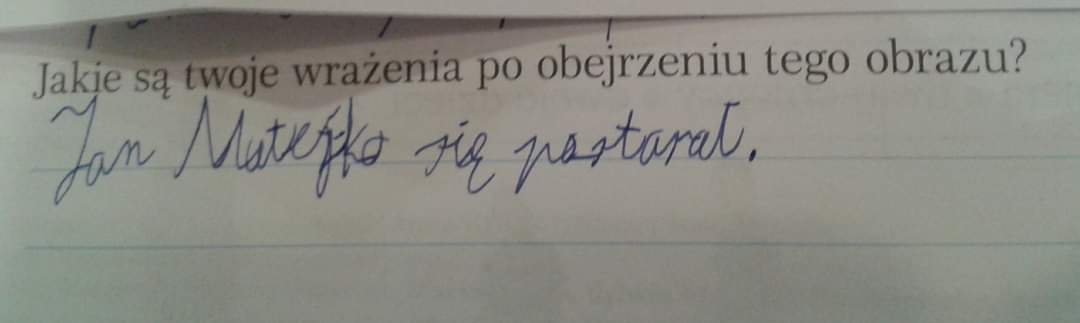 Jakie są twoje wrażenia po obejrzeniu tego obrazu?
Jan Matejko się postarał.